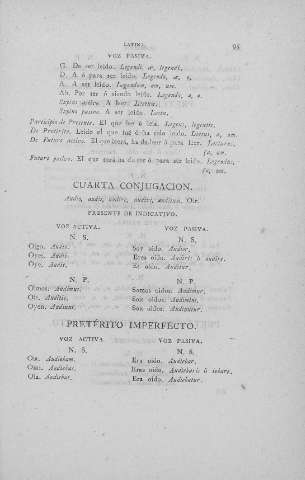 LATINA 95
VOZ PASIVA.
G. De ser leído. Legendi, æ, legendi.
D. A ó para ser leído. Legendo, æ, o.
A. A ser leído. Legendum, am, um.
Ab. Por ser ó siendo leído. Legendo, a, o.
Supino activo. A leer. Lectum.
Supino pasivo. A ser leído. Lectu.
Participio de Presente. El que lee ó leía. Legens, legentis.
De Pretérito. Leído el que fué ó ha sido leído. Lectus, a, um.
De Futuro activo. El que leerá, ha de leer ó para leer. Lecturus,
ra, um.
Futuro pasivo. El que será ha de ser ó para ser leído. Legendus,
da, um.
CUARTA CONJUGACION.
Audio, audis, audivi, audire, auditum. Oir.
PRESENTE DE INDICATIVO.
VOZ ACTIVA. VOZ PASIVA.
N. S. N. S.
Oigo. Audio. Soy oido. Audior.
Oyes. Audis. Eres oido. Audiris ó audire.
Oye. Audit. Es oido. Auditur.
N. P. N. P.
Oimos. Audimus. Somos oidos. Audimur.
Ois. Auditis. Sois oidos. Audimini.
Oyen. Audiunt. Son oidos. Audiuntur.
PRETÉRITO IMPERFECTO.
VOZ ACTIVA. VOZ PASIVA.
N. S. N. S.
Oia. Audiebam. Era oido. Audiebar.
Oias. Audiebas. Eras oido. Audiebaris ó iebare.
Oia. Audiebat. Era oido. Audiebatur.